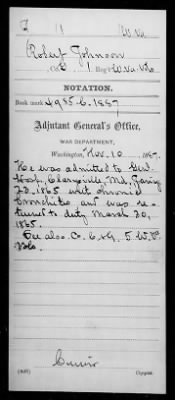 J W.Va.
Robert Johnson
Co. , 1 Reg't W. Va. Vols
NOTATION.
Book mark 4985-C-1887
Adjutant General's Office,
WAR DEPARTMENT,
Washington, Nov. 10, 1887.
He was admitted to Genl.
Hosp. Clarysville, Md.,
22, 1865 with chronic
bronchitis and was re-
turned to duty March 20,
1865.
See also Co. G. 5. W. V.
Vols.
Copyist.